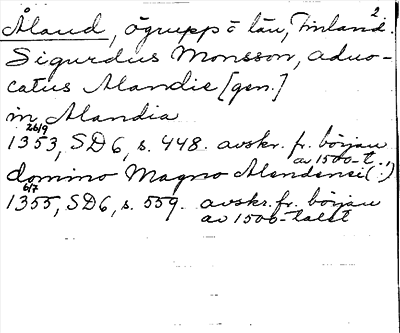 2
Åland, ögrupp o län, Finland.
Sigurdus Monsson, aduo-
catus Alandie [gen.]
in Alandia
26/9
1353, SD6, s. 448. avskr. fr. början
av 1500-t.
domino Magno Alendensi (:)
6/7
1355, SD6, s. 559. avskr. fr. början
av 1500-talet